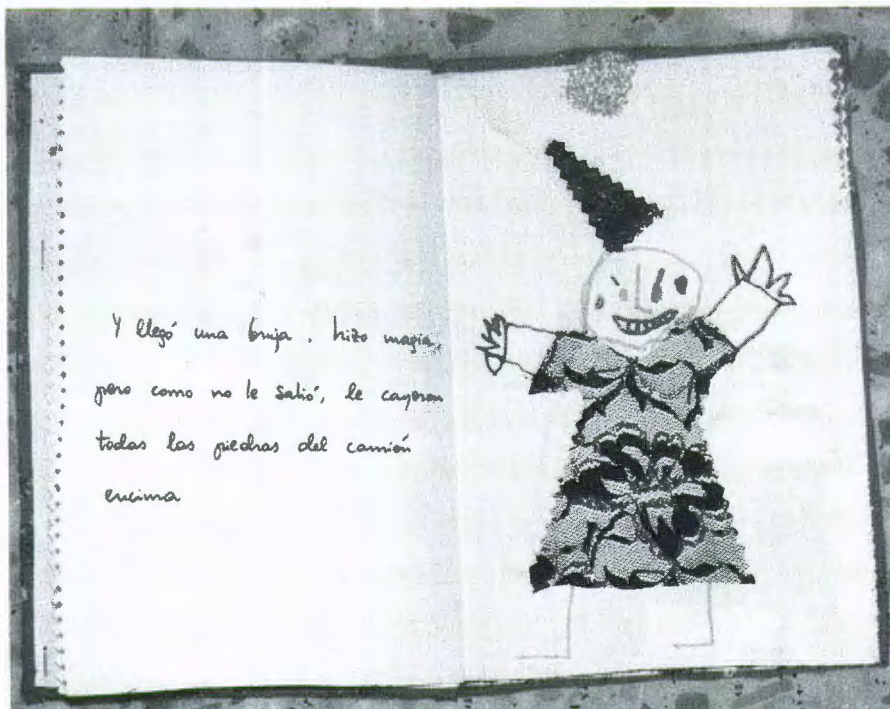 Y llegó una bruja, hizo magia,
pero como no le salió, le cayeron
todas las piedras del camión
encima